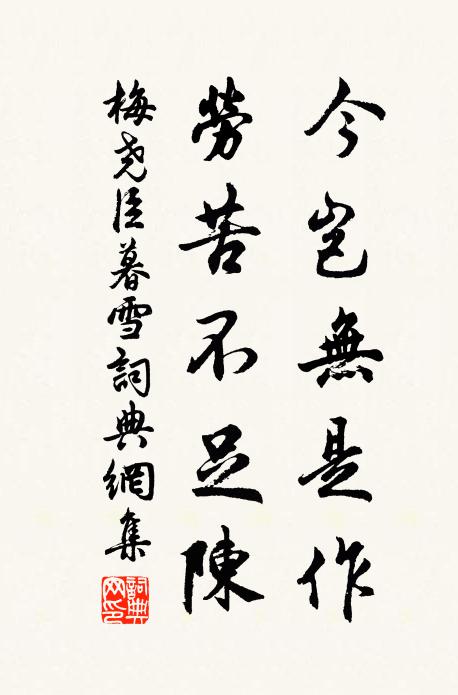 今豈無是作
勞苦不足陳
梅堯臣暮雪詞典網集
詞典網印